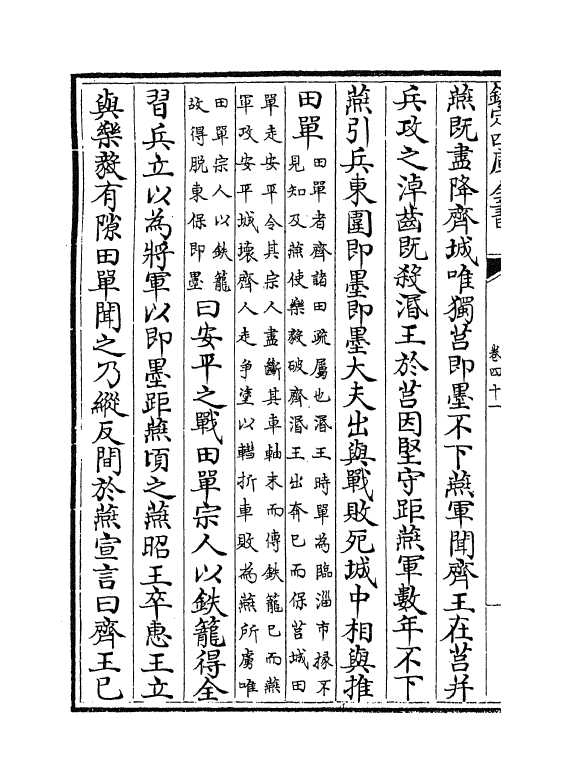 欽定四庫全書
卷四十一
燕既盡降齊城唯獨莒即墨不下燕軍聞齊王在莒并
兵攻之淖齒既殺湣王於莒因堅守距燕軍數年不下
燕引兵東圍即墨即墨大夫出與戰敗死城中相與推
田單田單者齊諸田疏屬也湣王時單為臨淄市掾不
見知及燕使樂毅破齊湣王出奔已而保莒城田
單走安平令其宗人盡斷其車軸末而傅鉄籠已而燕
軍攻安平城壞齊人走爭塗以轊折車敗為燕所虜唯
田單宗人以鉄籠
故得脱東保即墨曰安平之戰田單宗人以鉄籠得全
習兵立以為將軍以即墨距燕頃之燕昭王卒惠王立
與樂毅有隙田單聞之乃縱反間於燕宣言曰齊王已